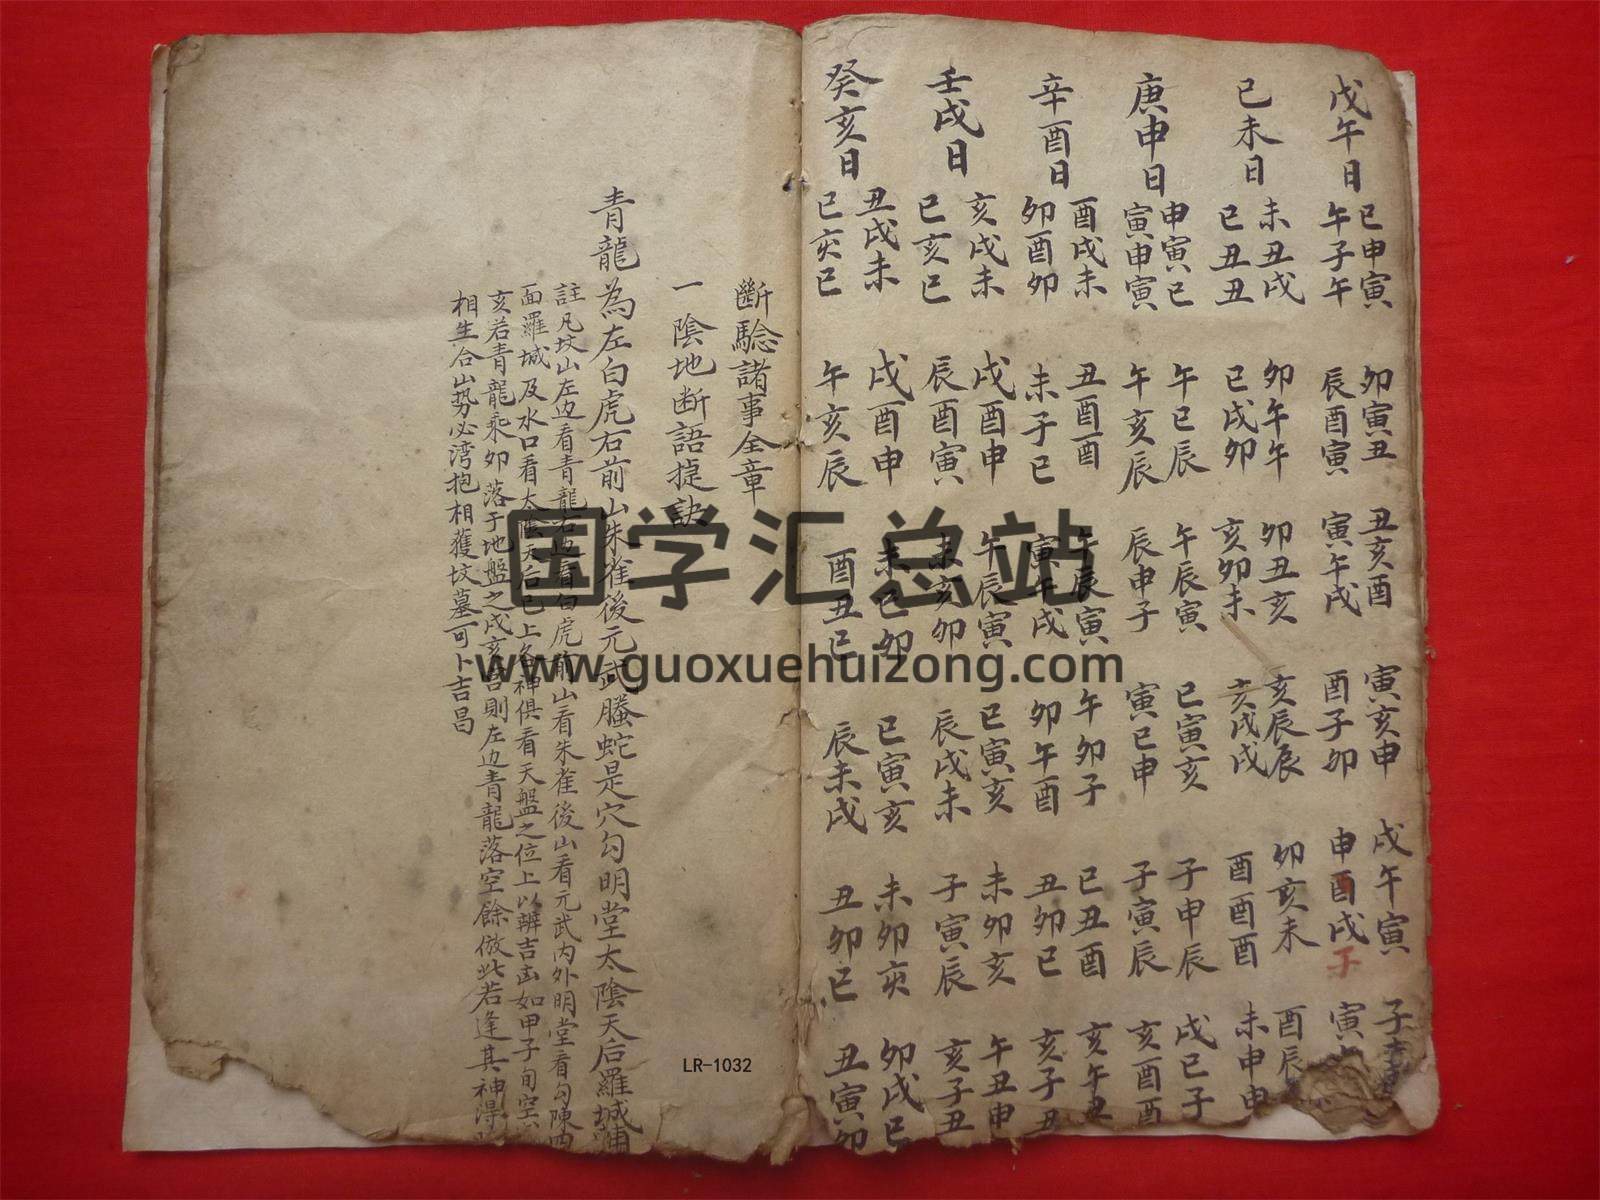 戊午日 巳申寅 卯寅丑 丑亥酉 寅亥申 戌午寅 子
午子午 辰酉寅 寅午戌 酉子卯 申酉戌子 寅
己未日 未丑戌 卯午午 卯丑亥 亥辰辰 卯亥未 酉辰
巳丑丑 巳戌卯 亥卯未 亥戌戌 酉酉酉 未申申
庚申日 申寅巳 午巳辰 午辰寅 巳寅亥 子申辰 戌巳子
寅申寅 午亥辰 辰申子 寅巳申 子寅辰 亥酉酉
辛酉日 酉戌未 丑酉酉 午辰寅 午卯子 巳丑酉 亥午丑
卯酉卯 未子巳 寅午戌 卯午酉 丑卯巳 亥子丑
壬戌日 亥戌未 戌酉申 午辰寅 巳寅亥 未卯亥 午丑申
巳亥巳 辰酉寅 未亥卯 辰戌未 子寅辰 亥子丑
癸亥日 丑戌未 戌酉申 未巳卯 巳寅亥 未卯亥 卯戌巳
巳亥巳 午亥辰 酉丑巳 辰未戌 丑卯巳 丑寅卯
斷騐諸事全章
一陰地断語捷訣
青龍為左白虎右前山朱雀後元武騰蛇是穴勾明堂太陰天后羅城補
註凡坟山左边看青龍右边看白虎前山看朱雀後山看元武内外明堂看勾陳四
面羅城及水口看太陰天后已上各神俱看天盤之位上以辨吉凶如甲子旬空
亥若青龍乘卯落于地盤之戌亥宮則左边青龍落空餘倣此若逢其神得
相生合山势必湾抱相獲坟墓可卜吉昌
国学汇总站
www.guoxuehuizong.com
LR-1032